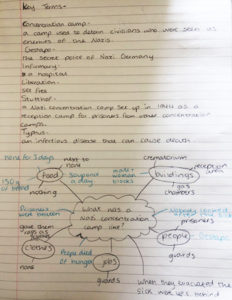 Key Terms-
Concentration camp-
a camp used to detain civilians who were seen as
enemies of the Nazis.
Gestapo-
the secret police of Nazi Germany
Infirmary-
a hospital
Liberation-
set free
Stutthof-
a Nazi concentration camp set up in as a
reception camp for prisoners from other concentration
camps.
Typhus-
an infectious disease that can cause death.
none for 3 days
next to
none
crematorium
reception
area
food
soup and
a day
male +
woman
blocks
buildings
150g
of bread
nothing
gas
chambers
Prisoners
were beaten
What was a
Nazi concentration
camp like?
prisoners
gave them
rags as
clothes
people
Gestapo
none
People died
of hunger
jobs
guards
guards
when they evacuated the
sick were left behind